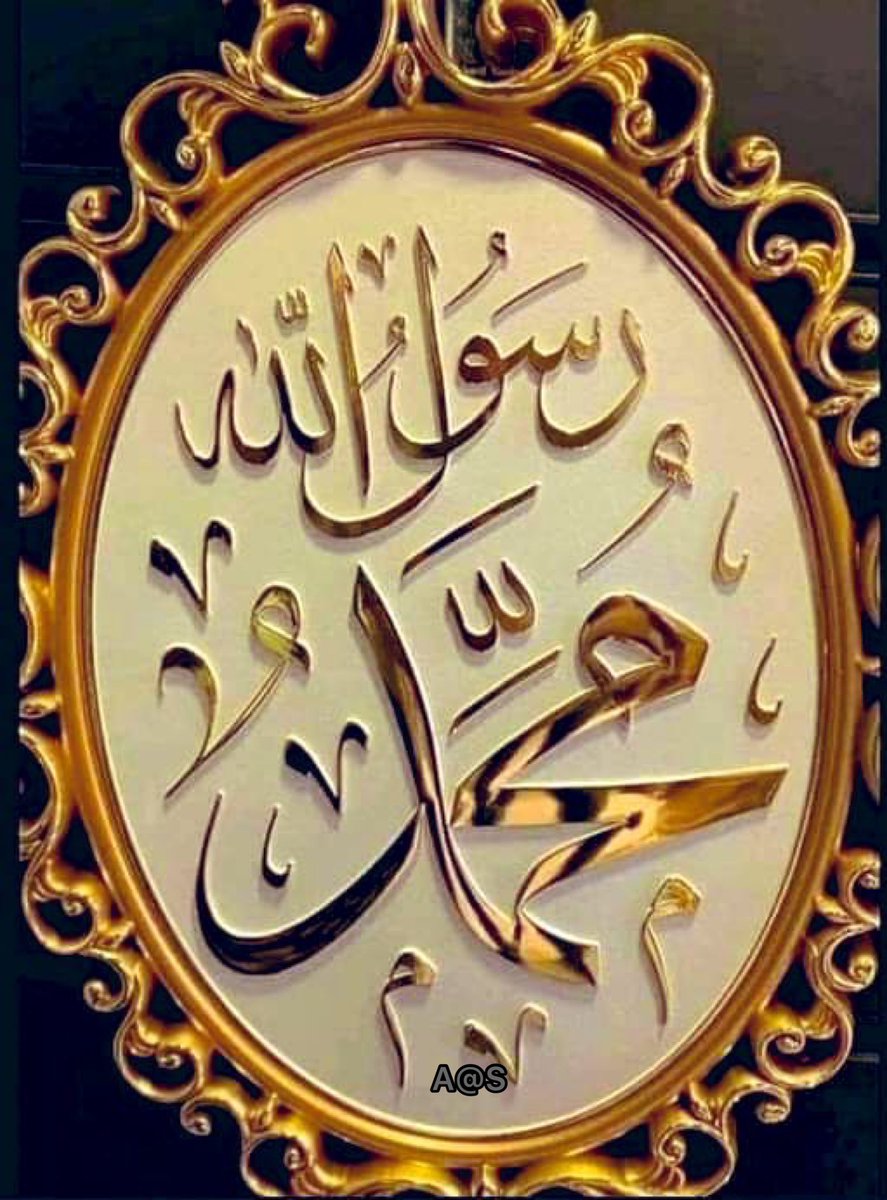 رَسُولُ اللّٰه
مُحَمَّدٌ
A@S